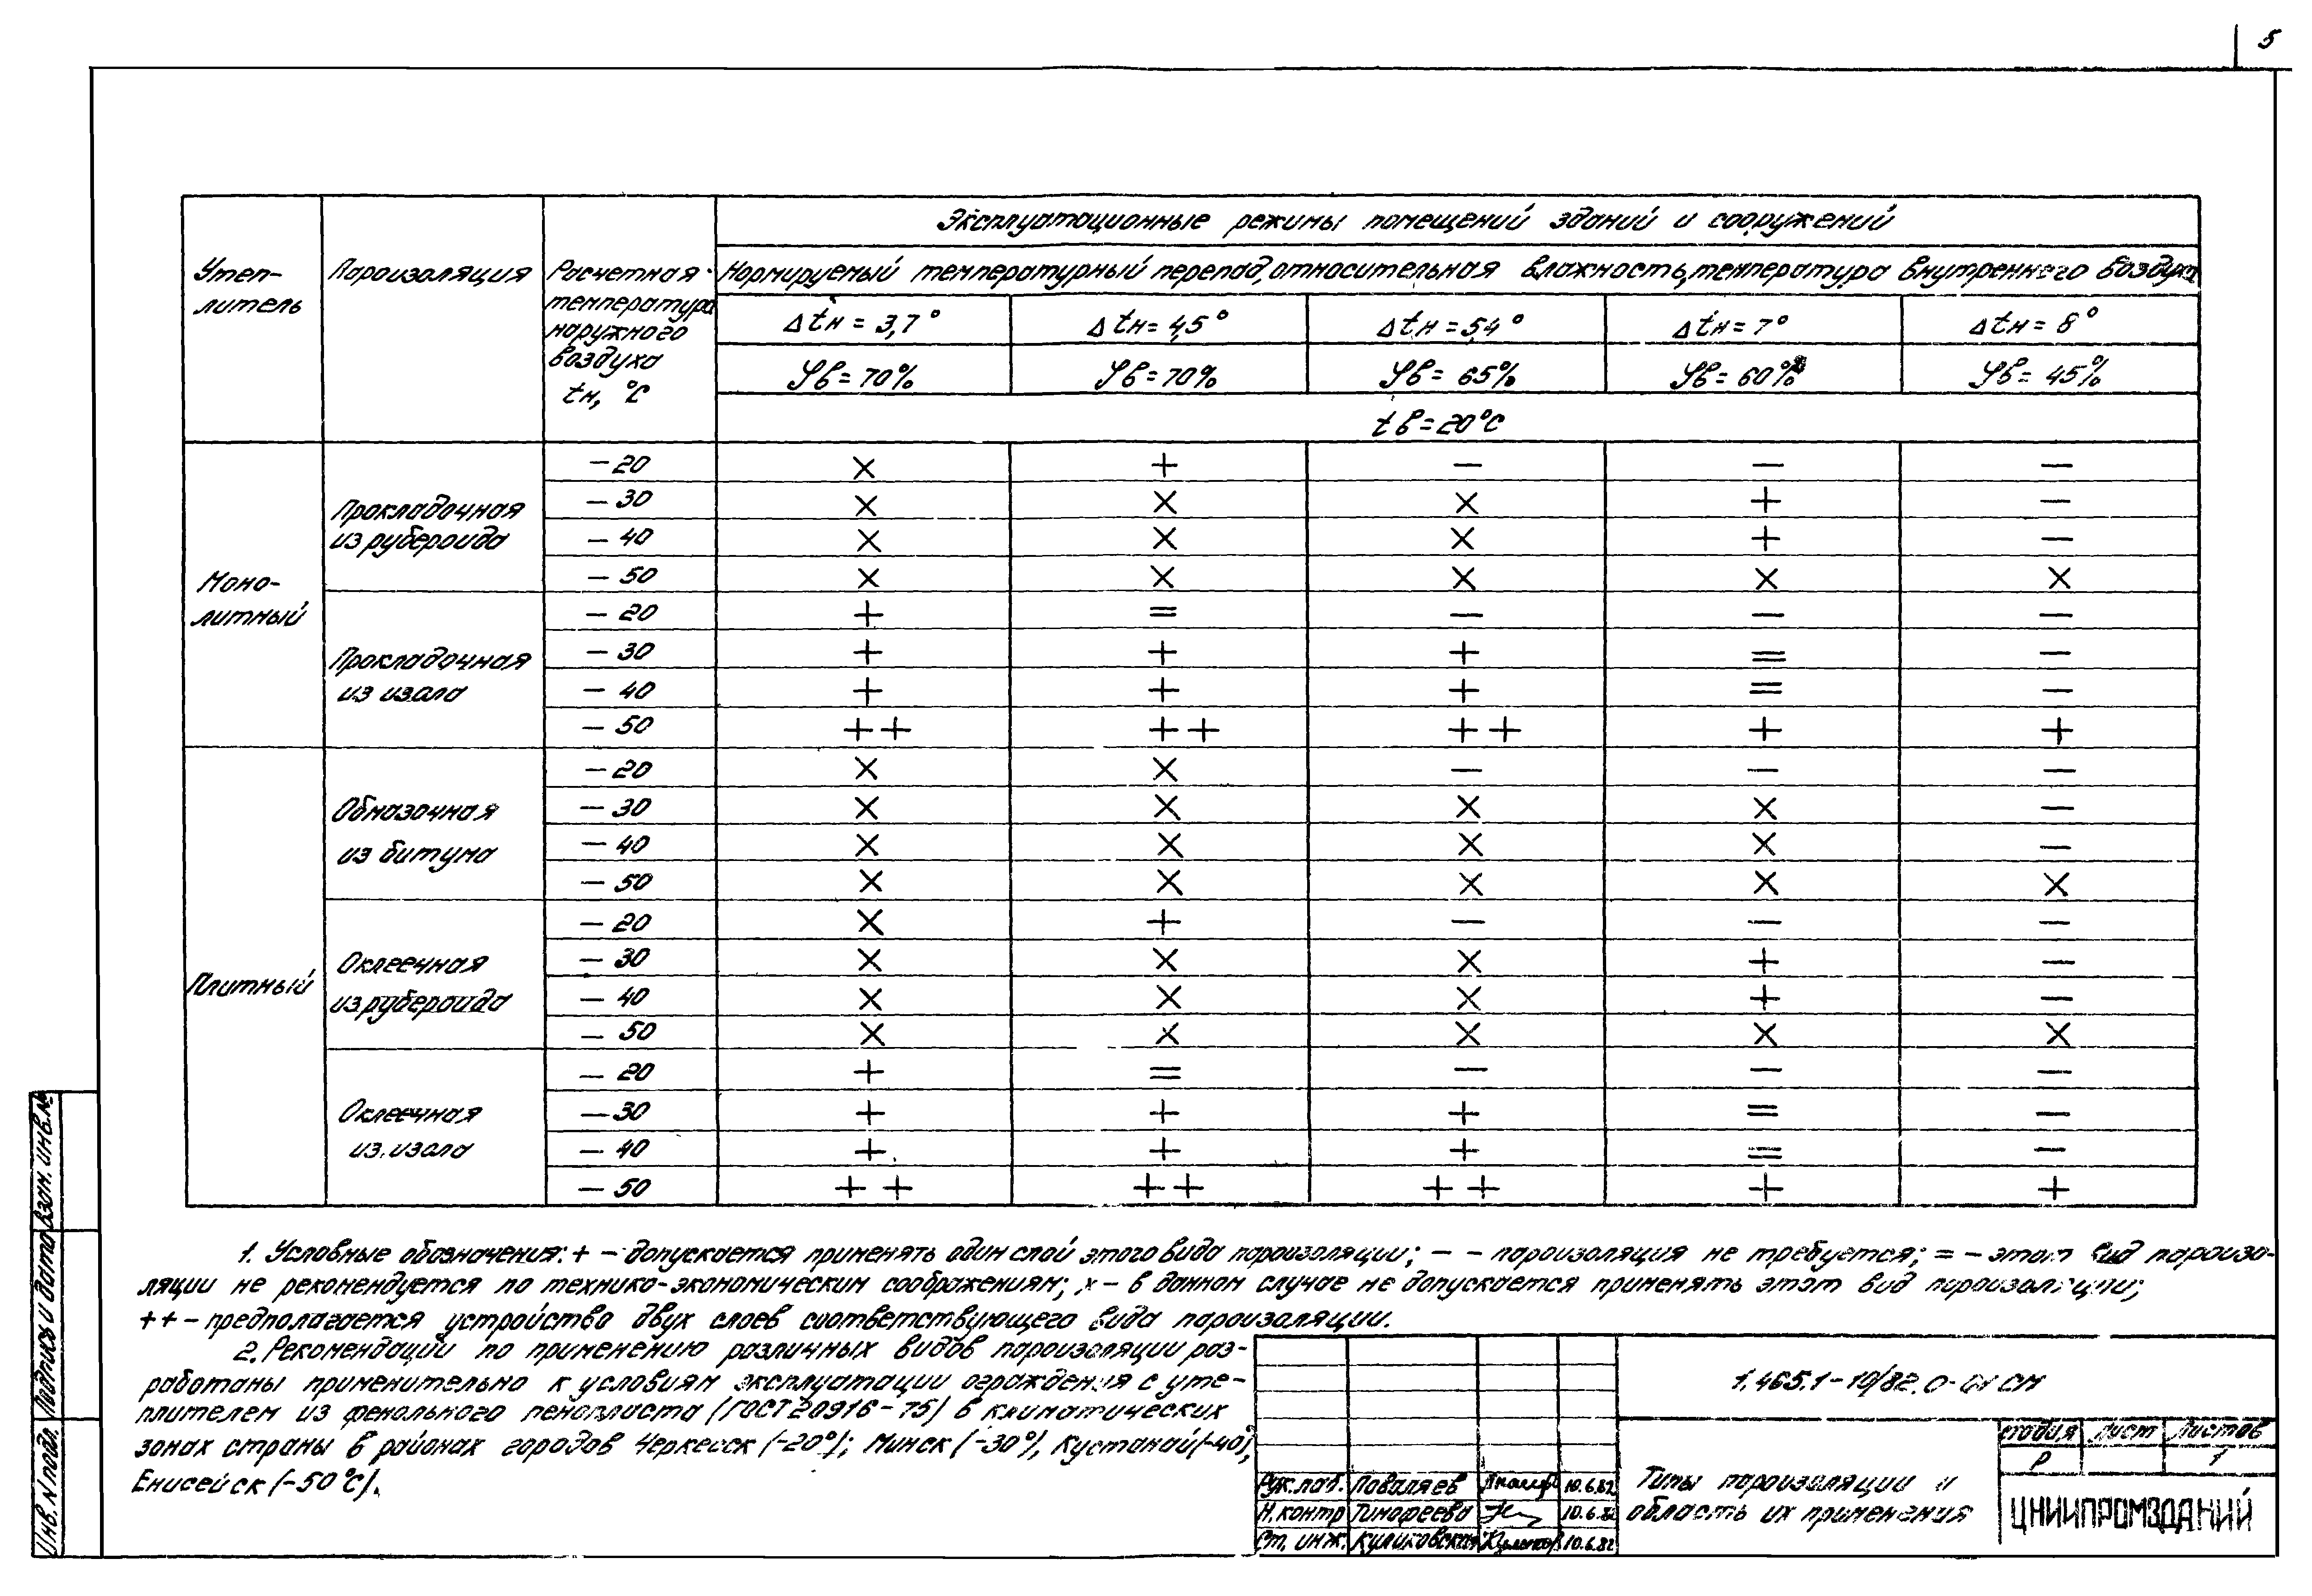 5
Эксплуатационные режимы помещений зданий и сооружений
Утеп-
литель
Пароизоляция
Расчетная
температура
наружного
воздуха
tн, °С
Нормируемый температурный перепад, относительная влажность, температура внутреннего воздуха
Δtн = 3,7° Δtн = 4,5° Δtн = 5,4° Δtн = 7° Δtн = 8°
φв = 70% φв = 70% φв = 65% φв = 60% φв = 45%
tв = 20°С
Моно-
литный
Прокладочная
из рубероида
-20 × + - - -
-30 × × × + -
-40 × × × + -
-50 × × × × ×
Прокладочная
из изола
-20 + = - - -
-30 + + + = -
-40 + + + = -
-50 ++ ++ ++ + +
Плитный
Обмазочная
из битума
-20 × × - - -
-30 × × × × -
-40 × × × × -
-50 × × × × ×
Оклеечная
из рубероида
-20 × + - - -
-30 × × × + -
-40 × × × + -
-50 × × × × ×
Оклеечная
из изола
-20 + = - - -
-30 + + + = -
-40 + + + = -
-50 ++ ++ ++ + +
1. Условные обозначения: + – допускается применять один слой этого вида пароизоляции; – – пароизоляция не требуется; = – этот вид пароизо-
ляции не рекомендуется по технико-экономическим соображениям; × – в данном случае не допускается применять этот вид пароизоляции;
++ – предполагается устройство двух слоев соответствующего вида пароизоляции.
2. Рекомендации по применению различных видов пароизоляции раз-
работаны применительно к условиям эксплуатации ограждения с уте-
плителем из фенольного пенопласта (ГОСТ 20916-75) в климатических
зонах страны в районах городов Черкесск (-20°); Минск (-30°), Кустанай (-40°),
Енисейск (-50°С).
1.465.1-10/82.0-01 СМ
Рук. лаб. Поваляев 10.6.82
Н. контр Тимофеева 10.6.82
Ст. инж. Куликовская 10.6.82
Типы пароизоляции и
область их применения
Стадия Лист Листов
Р 1
ЦНИИПРОМЗДАНИЙ
Инв. N подл. Подпись и дата Взам. инв. №